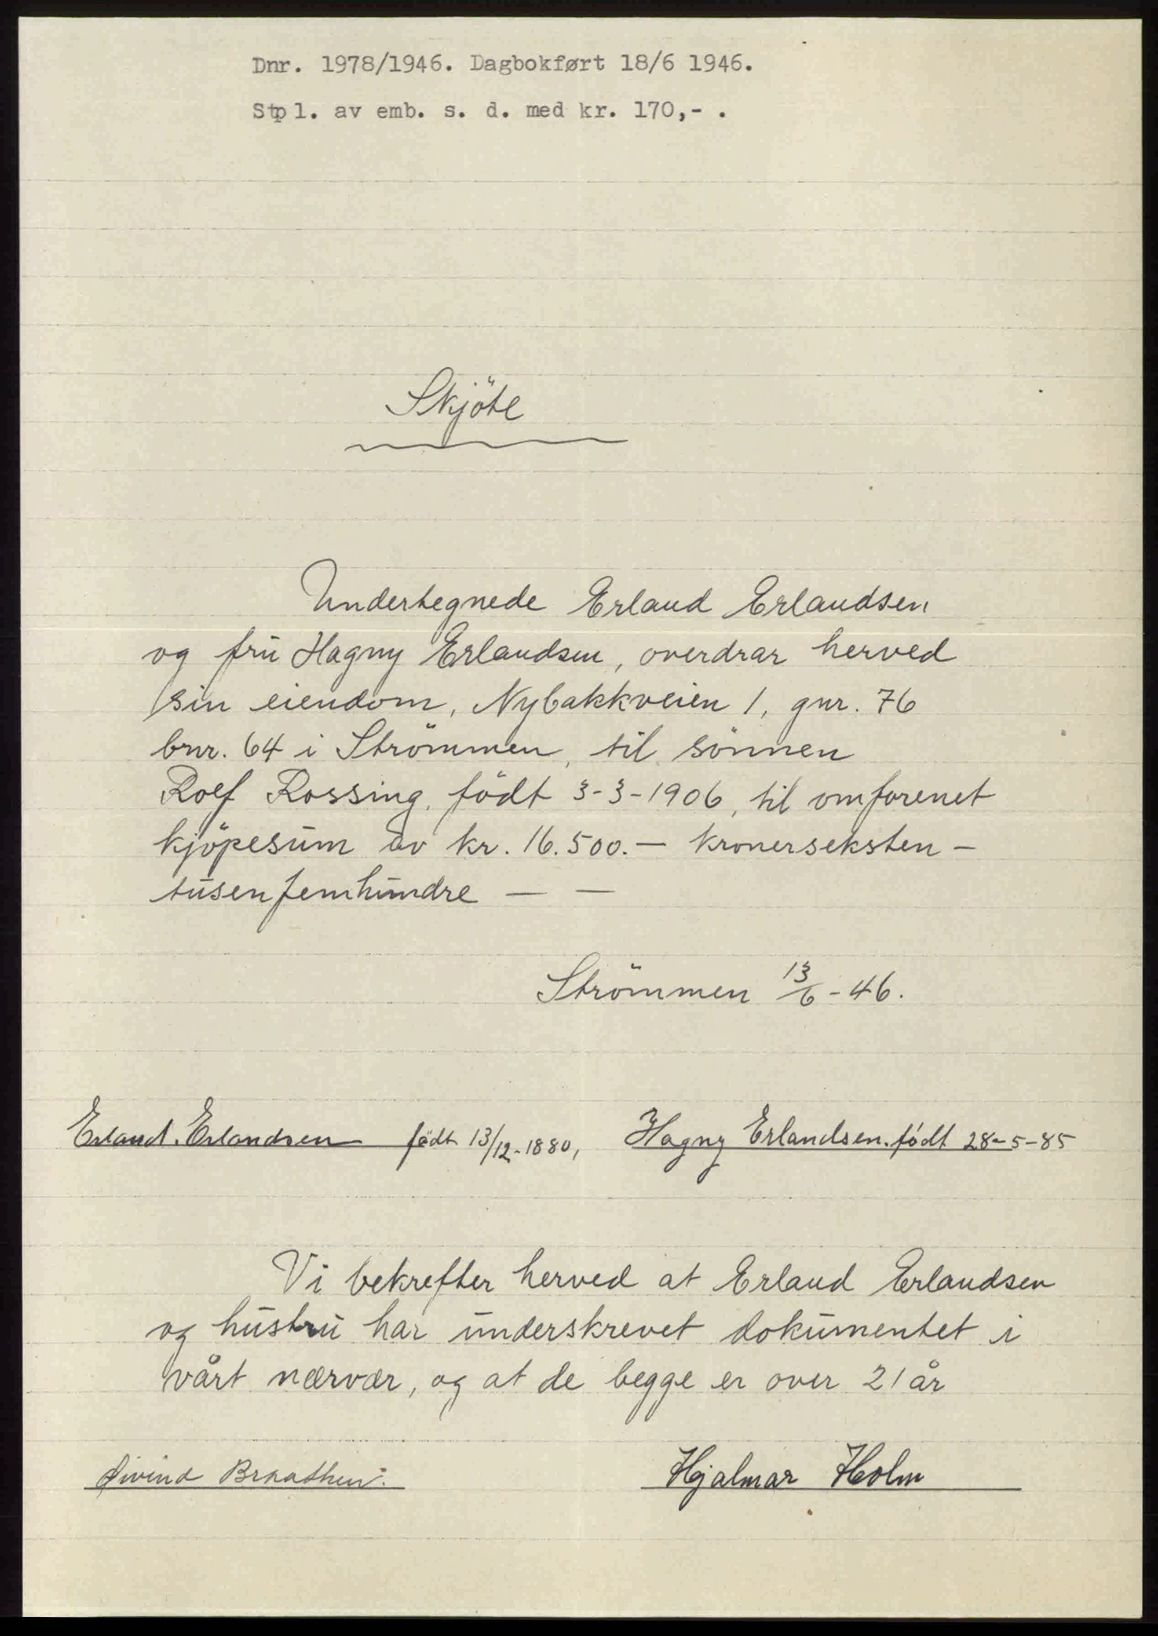 Dnr. 1978/1946. Dagbokført 18/6 1946.
Stpl. av emb. s. d. med kr. 170,- .
Skjöte
Undertegnede Erland Erlandsen
og fru Hagny Erlandsen, overdrar herved
sin eiendom, Nybakkveien 1, gnr. 76
bnr. 64 i Strömmen, til sönnen
Rolf Rossing, födt 3-3-1906, til omforenet
kjöpesum av kr. 16.500.— kronerseksten-
tusenfemhundre — —
Strömmen 13/6-46.
Erland. Erlandsen födt 13/12-1880, Hagny Erlandsen. födt 28-5-85
Vi bekrefter herved at Erland Erlandsen
og hustru har underskrevet dokumentet i
vårt nærvær, og at de begge er over 21 år
Øivind Braathen. Hjalmar Holm